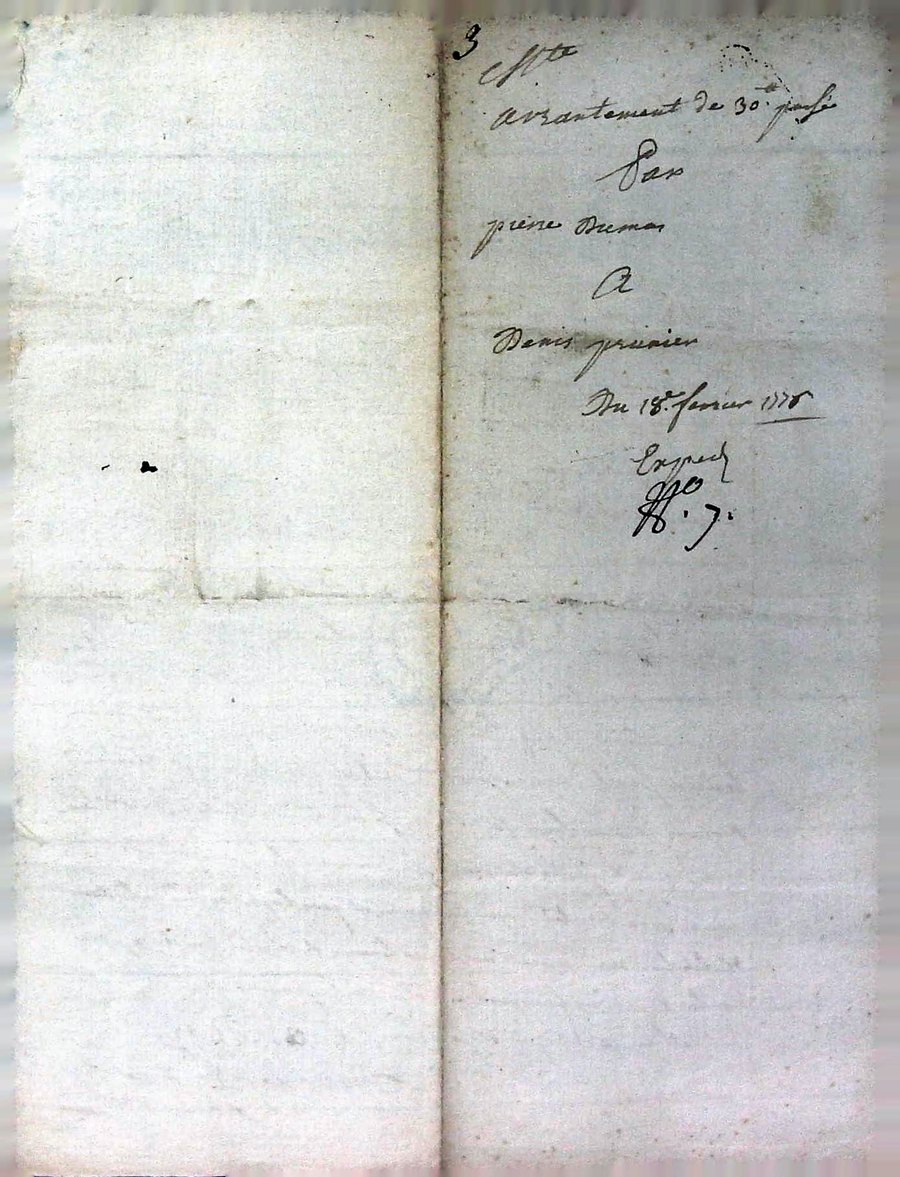 3
arrantement de 30.tt passé
Par
pierre Dumas
A
Denis prunier
Du 18.e fevrier 1776
Exped
N.o 7.